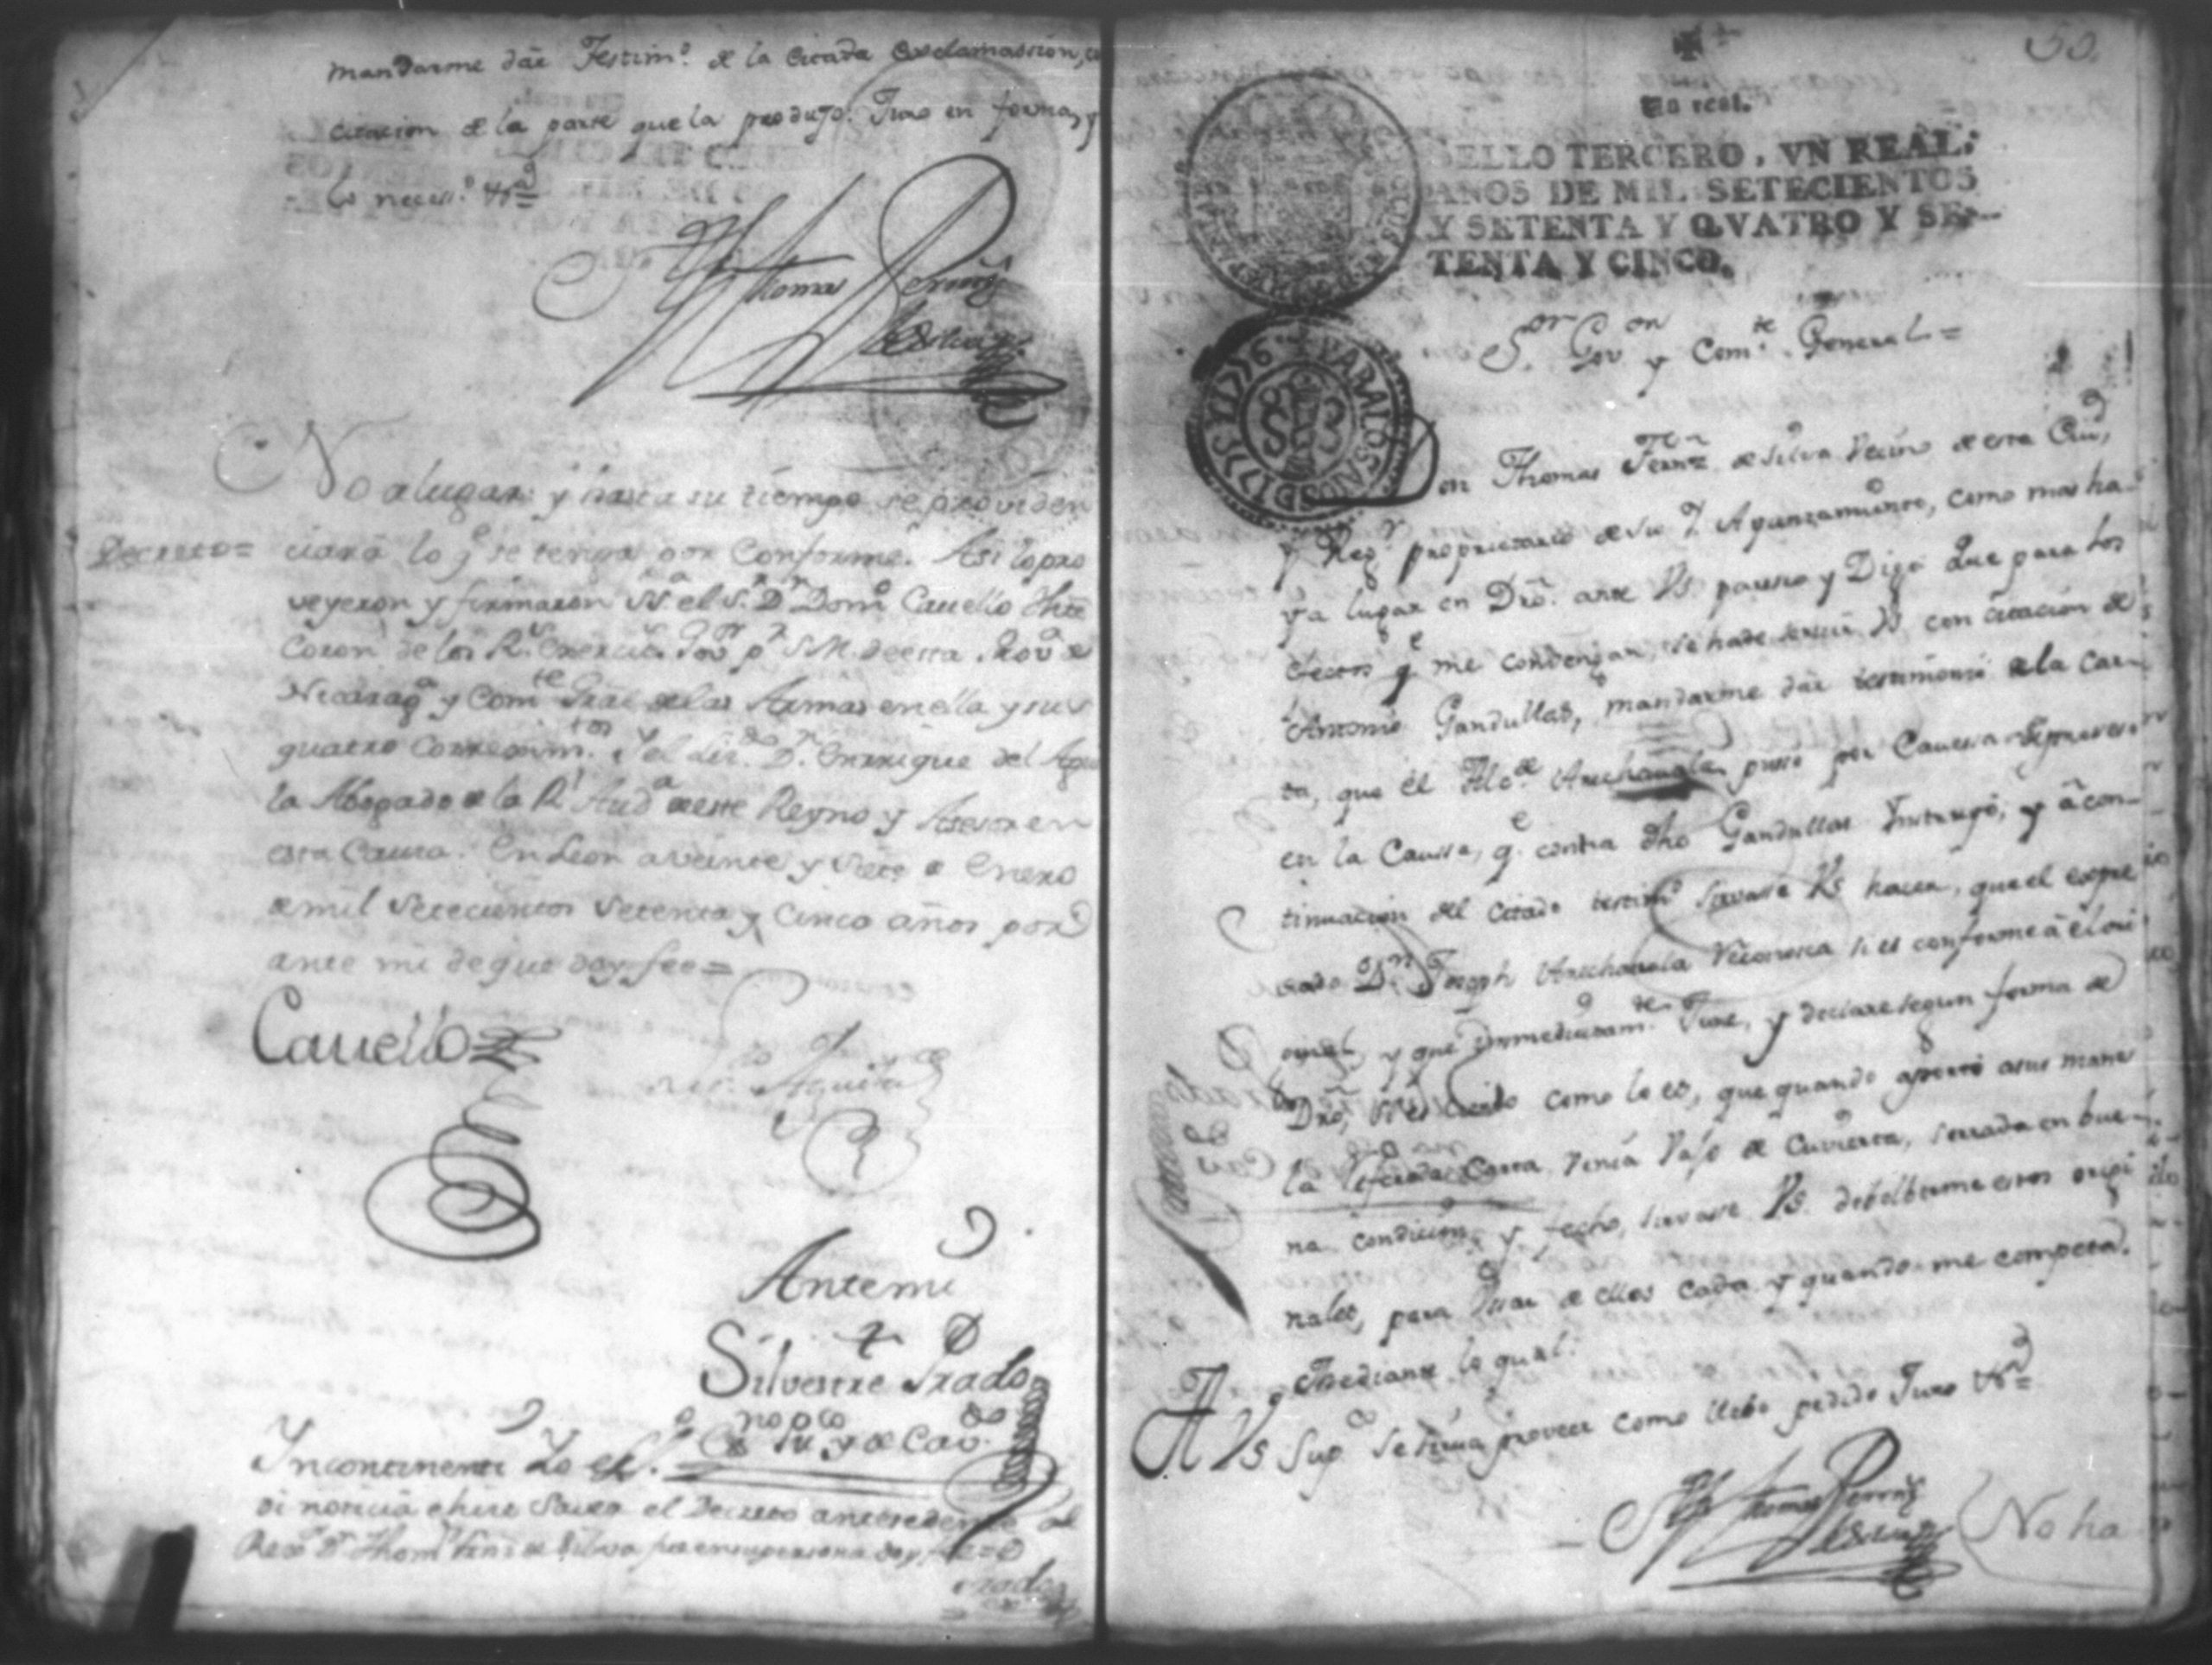 mandarme dar Testim.º de la citada Exclamassion,
citacion de la parte que la produjo: Juro en forma, y
lo neces.º &ª=
Thomas Fernz
de Silva
Decreto=
No a lugar: y hasta su tiempo se providen
ciará lo q.e se tenga por conforme. Asi lo pro
veyeron y firmaron SSª el S.r D.n Dom.º Cavello Thte
Coron.l de los R.s Exercit.s Gov.or p.r S.M. de esta Prov.ª de
Nicarag.ª y Com.te Gral de las Armas en ella y sus
quatro Correxim.tos y el Lic.do D.n Enrrique del Agui
la Abogado de la R.l Aud.ª de este Reyno y Asesor en
esta Causa. En Leon a veinte y siete de Enero
de mil setecientos setenta y cinco años por
ante mi de que doy fee=
Cavello
Lic.do Aguila
Ante mi
Silvestre Prado
no pco
de Cav.do
Incontinenti Yo el S.no
di noticia e hice Saver el Decreto antesedente al
Rexº Dn Thom.s Fern.z de Silva por en su persona doy fee=
Prado
50.
Vn real.
SELLO TERCERO, VN REAL;
AÑOS DE MIL SETECIENTOS
Y SETENTA Y QVATRO Y SE-
TENTA Y CINCO.
VARALOSAÑOSDE1775Y1776
S.or Gov.on y Com.te General=
Don Thomas Fernz de Silva Vecino de esta Ciud,
y Reg.r proprietario de su Y. Ayuntamiento, como mas ha-
ya lugar en Dro. ante VS. paresco y Digo: Que para los
efectos q.e me convengan, se ha de servir VS. con citacion de
Antonio Gandullas, mandarme dar testimonio de la Car-
ta, que el Alc.de Arechavala puso por Cavessa de proceso
en la Caussa, q.e contra dho Gandullas Instruyó, y á con-
tinuacion del citado testim.º sirvasse VS. hacer, que el expre
sado D.n Joseph Arechavala reconosca si es conforme á el ori
ginal, y que immediatam.te Jure, y declare segun forma de
Dro, si es cierto como lo es, que quando aportó a sus manos
la referida Carta, venia vajo de Cuvierta, serrada en bue-
na condicion, y fecho, sirvasse VS. debolberme estos origi
nales, para usar de ellos cada y quando me competa.
Mediante lo qual.
A VS. Sup.co se sirva proveer como llebo pedido Juro &ª=
Thomas Fernz
de Silva
No ha